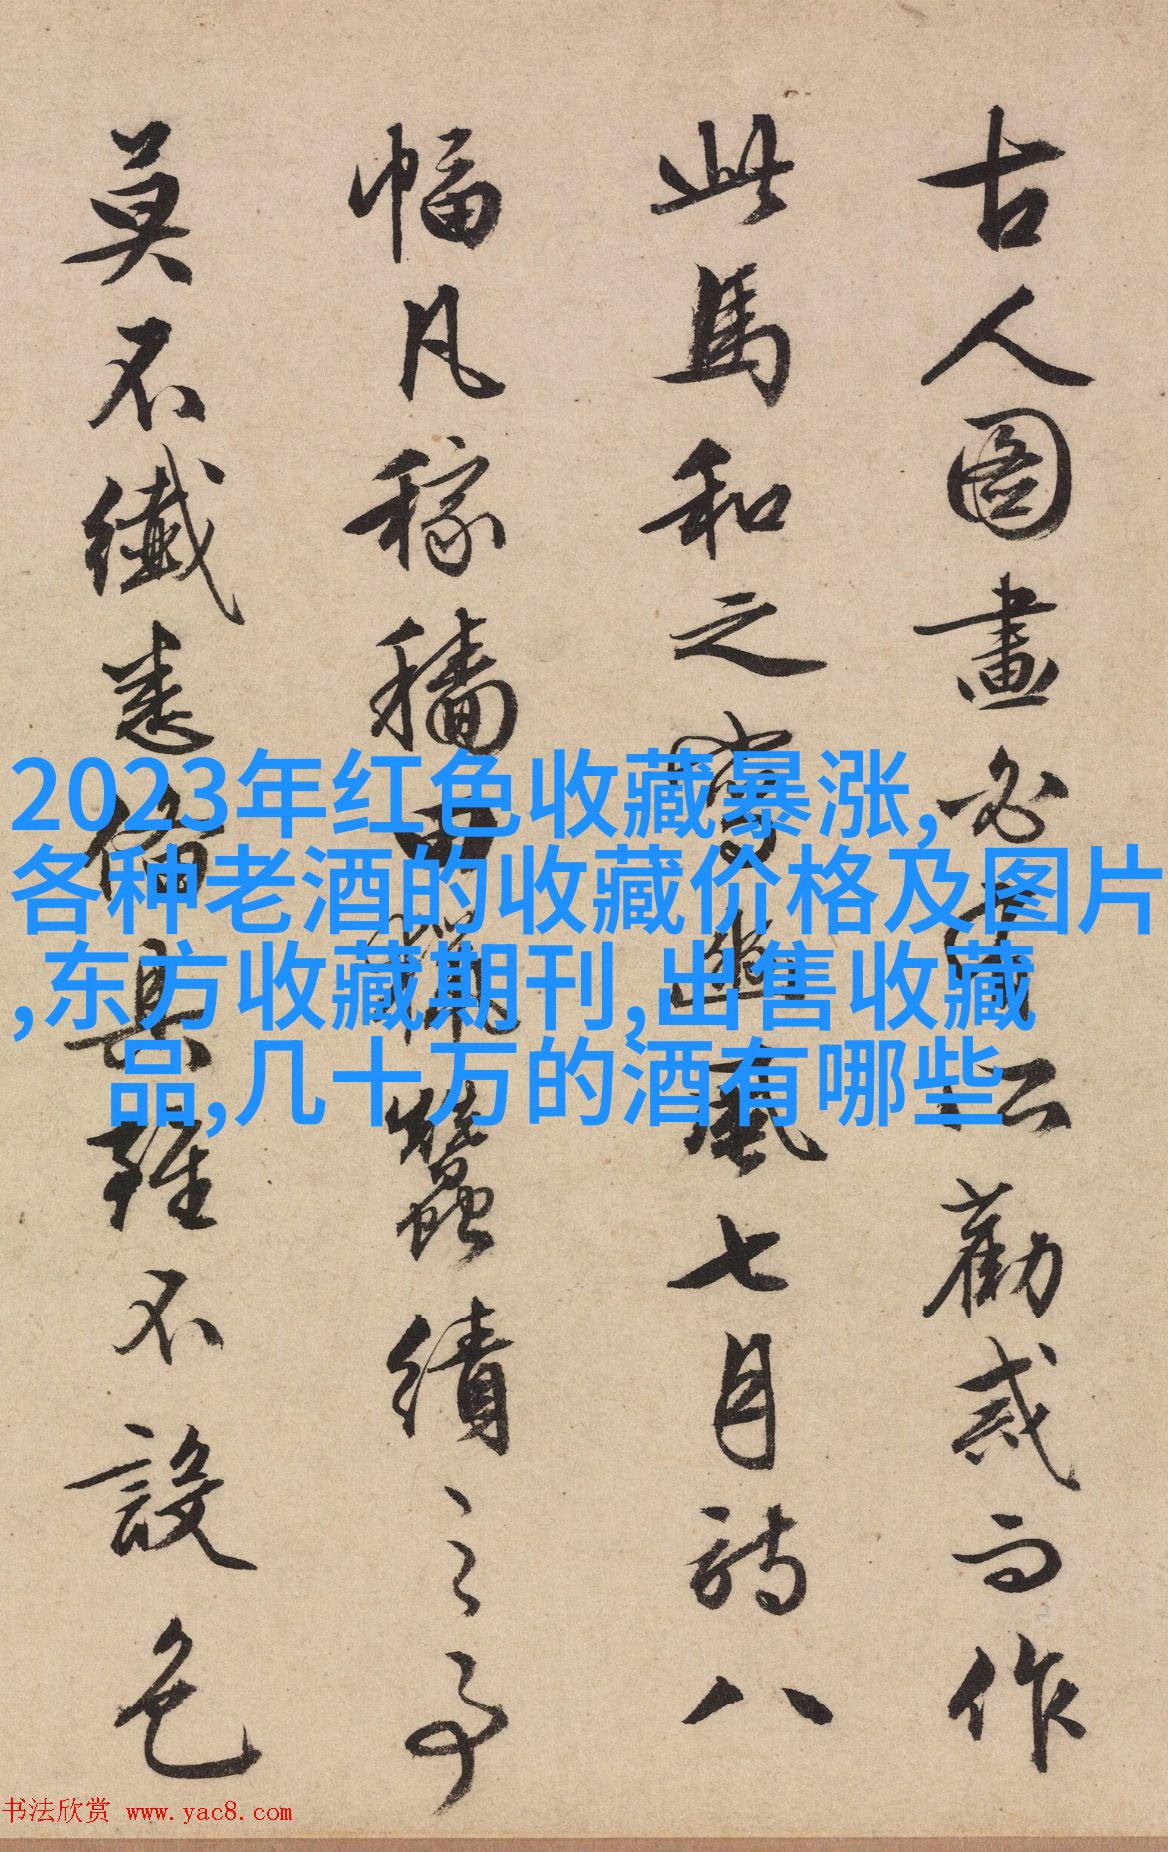 古人圖畫必以勸戒而作
此馬和之豳風七月詩八
幅凡稼穡田蠶績之事
莫不纖悉備具雖不設色
2023年红色收藏暴涨,
各种老酒的收藏价格及图片
,东方收藏期刊,出售收藏
品,几十万的酒有哪些
书法欣赏 www.yac8.com